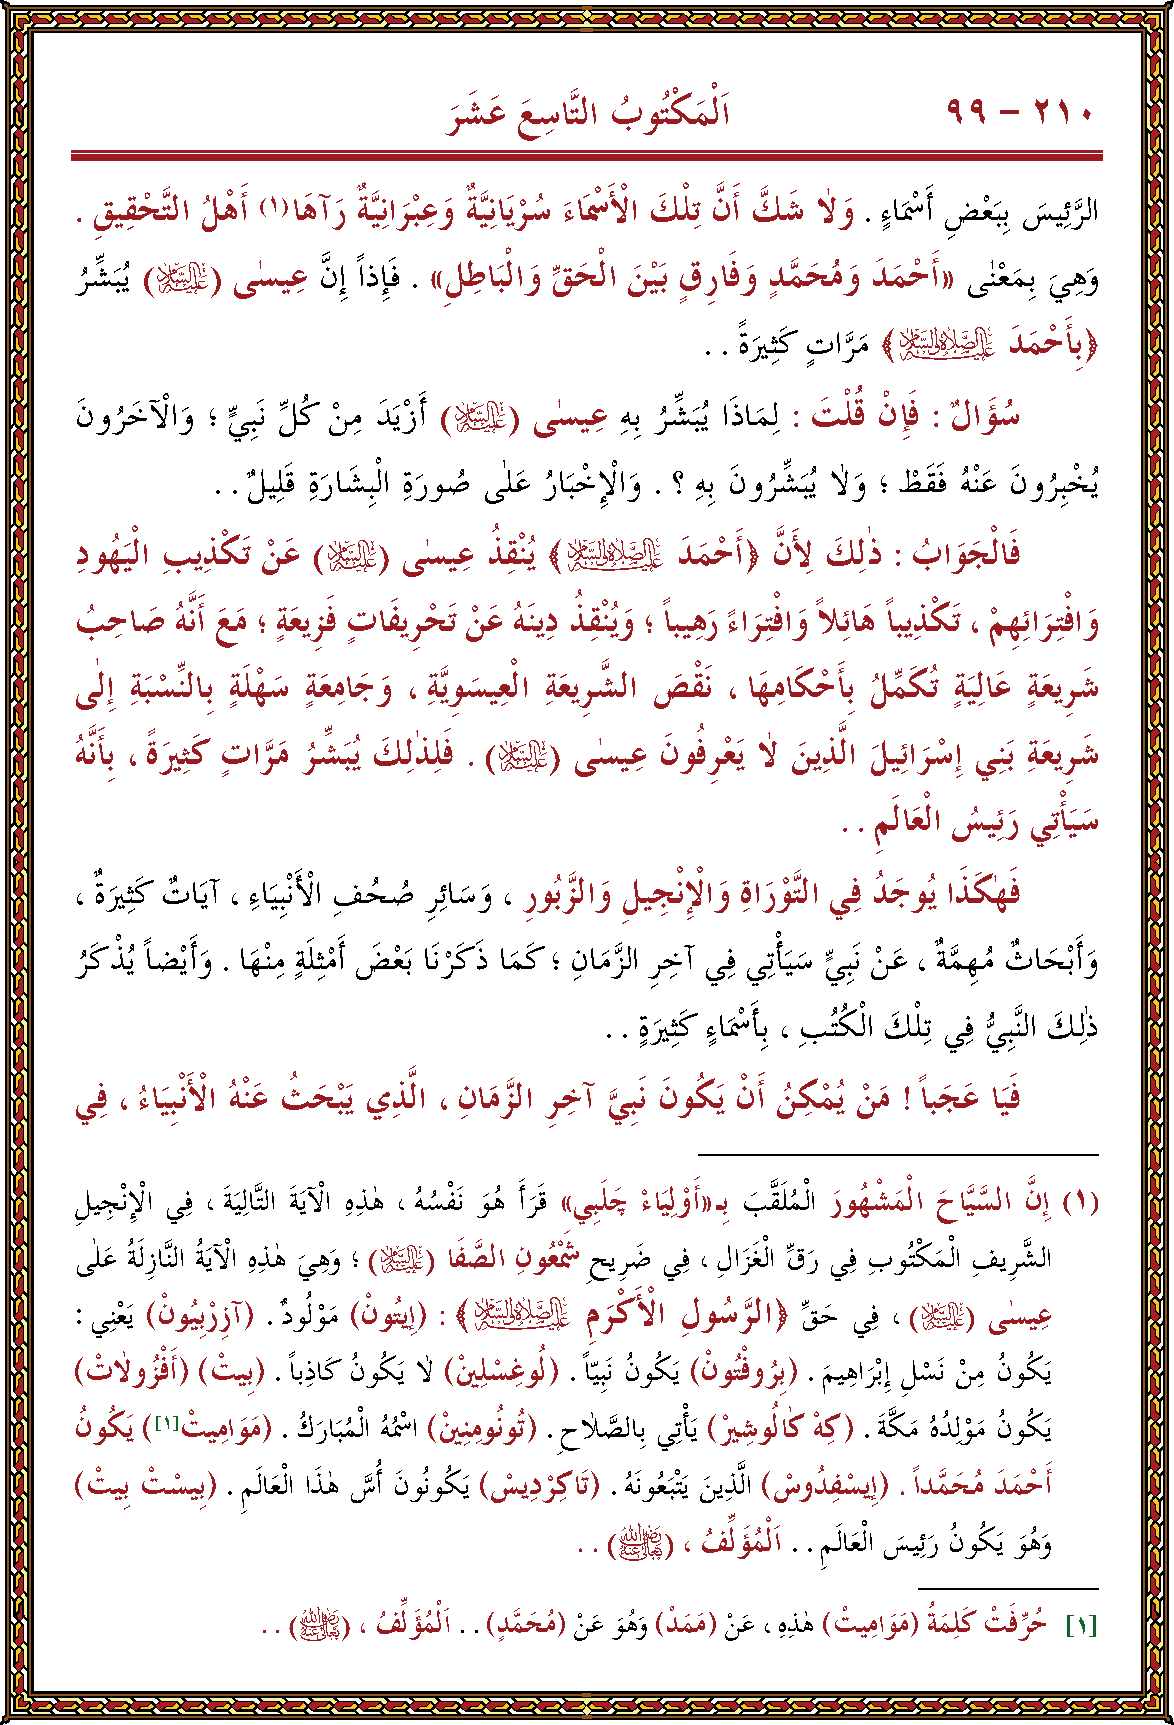 ٢١٠ - ٩٩ اَلْمَكْتُوبُ التَّاسِعَ عَشَرَ
الرَّئِيسَ بِبَعْضِ أَسْمَاءٍ . وَلاٰ شَكَّ أَنَّ تِلْكَ الْأَسْمَاءَ سُرْيَانِيَّةٌ وَعِبْرَانِيَّةٌ رَآهَا(١) أَهْلُ التَّحْقِيقِ .
وَهِيَ بِمَعْنٰى «أَحْمَدَ وَمُحَمَّدٍ وَفَارِقٍ بَيْنَ الْحَقِّ وَالْبَاطِلِ» . فَإِذاً إِنَّ عِيسٰى (عَلَيْهِ السَّلَامُ) يُبَشِّرُ
﴿بِأَحْمَدَ عَلَيْهِ الصَّلَاةُ وَالسَّلَامُ﴾ مَرَّاتٍ كَثِيرَةً . .
سُؤَالٌ : فَإِنْ قُلْتَ : لِمَاذَا يُبَشِّرُ بِهِ عِيسٰى (عَلَيْهِ السَّلَامُ) أَزْيَدَ مِنْ كُلِّ نَبِيٍّ ؛ وَالْآخَرُونَ
يُخْبِرُونَ عَنْهُ فَقَطْ ؛ وَلاٰ يُبَشِّرُونَ بِهِ ؟ . وَالْإِخْبَارُ عَلٰى صُورَةِ الْبِشَارَةِ قَلِيلٌ . .
فَالْجَوَابُ : ذٰلِكَ لِأَنَّ ﴿أَحْمَدَ عَلَيْهِ الصَّلَاةُ وَالسَّلَامُ﴾ يُنْقِذُ عِيسٰى (عَلَيْهِ السَّلَامُ) عَنْ تَكْذِيبِ الْيَهُودِ
وَافْتِرَائِهِمْ ، تَكْذِيباً هَائِلاً وَافْتِرَاءً رَهِيباً ؛ وَيُنْقِذُ دِينَهُ عَنْ تَحْرِيفَاتٍ فَزِيعَةٍ ؛ مَعَ أَنَّهُ صَاحِبُ
شَرِيعَةٍ عَالِيَةٍ تُكَمِّلُ بِأَحْكَامِهَا ، نَقْصَ الشَّرِيعَةِ الْعِيسَوِيَّةِ ، وَجَامِعَةٍ سَهْلَةٍ بِالنِّسْبَةِ إِلٰى
شَرِيعَةِ بَنِي إِسْرَائِيلَ الَّذِينَ لاٰ يَعْرِفُونَ عِيسٰى (عَلَيْهِ السَّلَامُ) . فَلِذٰلِكَ يُبَشِّرُ مَرَّاتٍ كَثِيرَةً ، بِأَنَّهُ
سَيَأْتِي رَئِيسُ الْعَالَمِ . .
فَهٰكَذَا يُوجَدُ فِي التَّوْرَاةِ وَالْإِنْجِيلِ وَالزَّبُورِ ، وَسَائِرِ صُحُفِ الْأَنْبِيَاءِ ، آيَاتٌ كَثِيرَةٌ ،
وَأَبْحَاثٌ مُهِمَّةٌ ، عَنْ نَبِيٍّ سَيَأْتِي فِي آخِرِ الزَّمَانِ ؛ كَمَا ذَكَرْنَا بَعْضَ أَمْثِلَةٍ مِنْهَا . وَأَيْضاً يُذْكَرُ
ذٰلِكَ النَّبِيُّ فِي تِلْكَ الْكُتُبِ ، بِأَسْمَاءٍ كَثِيرَةٍ . .
فَيَا عَجَباً ! مَنْ يُمْكِنُ أَنْ يَكُونَ نَبِيَّ آخِرِ الزَّمَانِ ، الَّذِي يَبْحَثُ عَنْهُ الْأَنْبِيَاءُ ، فِي
(١) إِنَّ السَّيَّاحَ الْمَشْهُورَ الْمُلَقَّبَ بِـ«أَوْلِيَاءْ چَلَبِي» قَرَأَ هُوَ نَفْسُهُ ، هٰذِهِ الْآيَةَ التَّالِيَةَ ، فِي الْإِنْجِيلِ
الشَّرِيفِ الْمَكْتُوبِ فِي رَقِّ الْغَزَالِ ، فِي ضَرِيحِ شَمْعُونِ الصَّفَا (عَلَيْهِ السَّلَامُ) ؛ وَهِيَ هٰذِهِ الْآيَةُ النَّازِلَةُ عَلٰى
عِيسٰى (عَلَيْهِ السَّلَامُ) ، فِي حَقِّ ﴿الرَّسُولِ الْأَكْرَمِ عَلَيْهِ الصَّلَاةُ وَالسَّلَامُ﴾ : (إِيتُونْ) مَوْلُودٌ . (آزِرْبِيُونْ) يَعْنِي :
يَكُونُ مِنْ نَسْلِ إِبْرَاهِيمَ . (بْرُوفْتُونْ) يَكُونُ نَبِيّاً . (لُوغِسْلِينْ) لاٰ يَكُونُ كَاذِباً . (بِيتْ) (أَفْزُولاٰتْ)
يَكُونُ مَوْلِدُهُ مَكَّةَ . (كِهْ كَالُوشِيرْ) يَأْتِي بِالصَّلاٰحِ . (تُونُومِنِينْ) اسْمُهُ الْمُبَارَكُ . (مَوَامِيتْ[١]) يَكُونُ
أَحْمَدَ مُحَمَّداً . (إِيسْفِدُوسْ) الَّذِينَ يَتَّبِعُونَهُ . (تَاكِرْدِيسْ) يَكُونُونَ أُسَّ هٰذَا الْعَالَمِ . (بِيسْتْ بِيتْ)
وَهُوَ يَكُونُ رَئِيسَ الْعَالَمِ . . اَلْمُؤَلِّفُ ، (رَضِيَ اللهُ تَعَالَى عَنْهُ) . .
[١] حُرِّفَتْ كَلِمَةُ (مَوَامِيتْ) هٰذِهِ ، عَنْ (مَمَدْ) وَهُوَ عَنْ (مُحَمَّدٍ) . . اَلْمُؤَلِّفُ ، (رَضِيَ اللهُ تَعَالَى عَنْهُ) . .